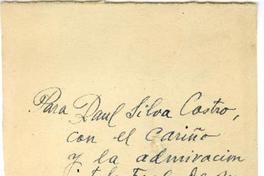 Para Raul Silva Castro,
con el cariño
y la admiracion